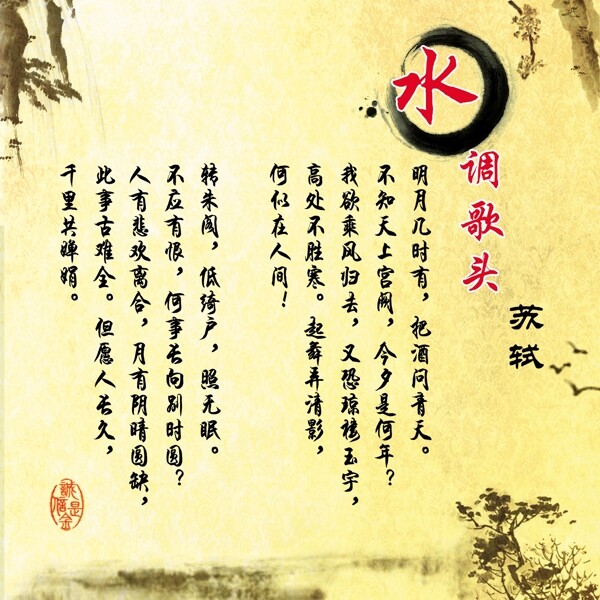 水调歌头
苏轼
明月几时有，把酒问青天。
不知天上宫阙，今夕是何年？
我欲乘风归去，又恐琼楼玉宇，
高处不胜寒。起舞弄清影，
何似在人间！
转朱阁，低绮户，照无眠。
不应有恨，何事长向别时圆？
人有悲欢离合，月有阴晴圆缺，
此事古难全。但愿人长久，
千里共婵娟。
誠信是金